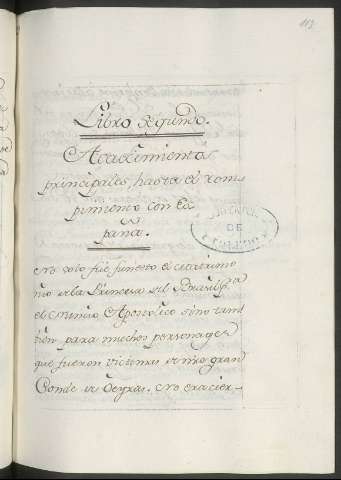 113
Libro segundo.
Acaecimientos
principales, hasta el rom-
pimiento con Es-
paña.
No solo fue funesto el
de la Princesa del Brasil, y a
el Nuncio Apostolico sino tam
bien para muchos personages
que fueron victimas de nro gran
Conde de Oeyras. No era cier-
DE